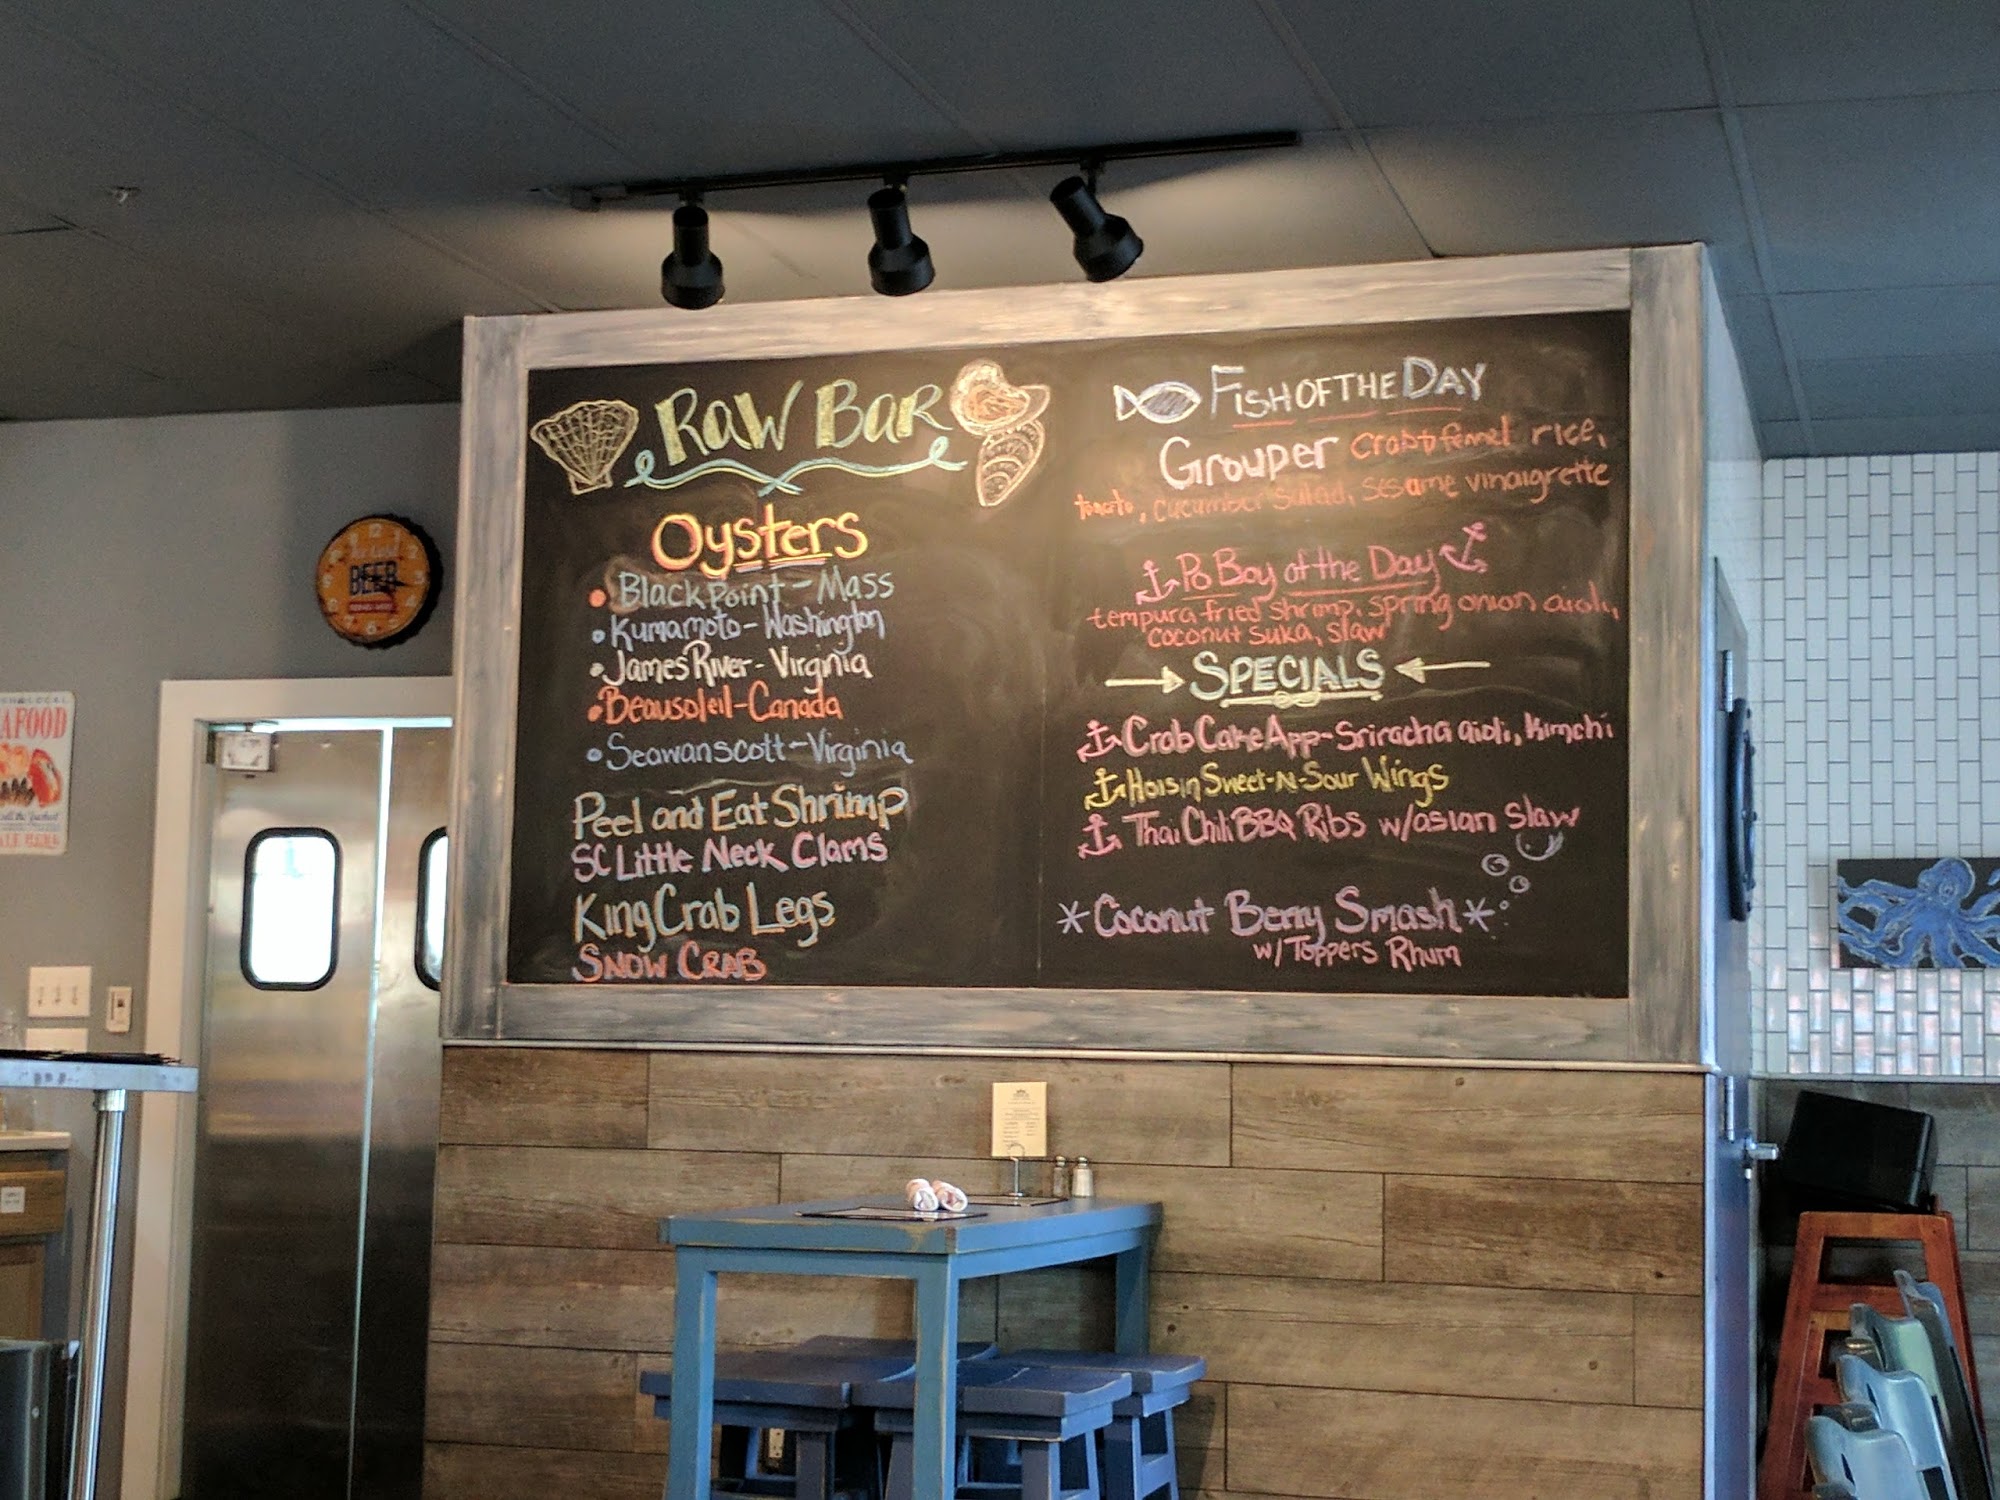 RAW BAR
Oysters
Black Point - Mass
Kumamoto - Washington
James River - Virginia
Beausoleil - Canada
Seawanscott - Virginia
Peel and Eat Shrimp
SC Little Neck Clams
King Crab Legs
SNOW CRAB
FISH OF THE DAY
Grouper crab + fennel rice,
tomato, cucumber salad, sesame vinaigrette
Po Boy of the Day
tempura fried shrimp, spring onion aioli,
coconut suka, slaw
SPECIALS
Crab Cake App - Sriracha aioli, Kimchi
Hoisin Sweet-N-Sour Wings
Thai Chili BBQ Ribs w/asian slaw
*Coconut Berry Smash*
w/Toppers Rhum
BEER
AFOOD